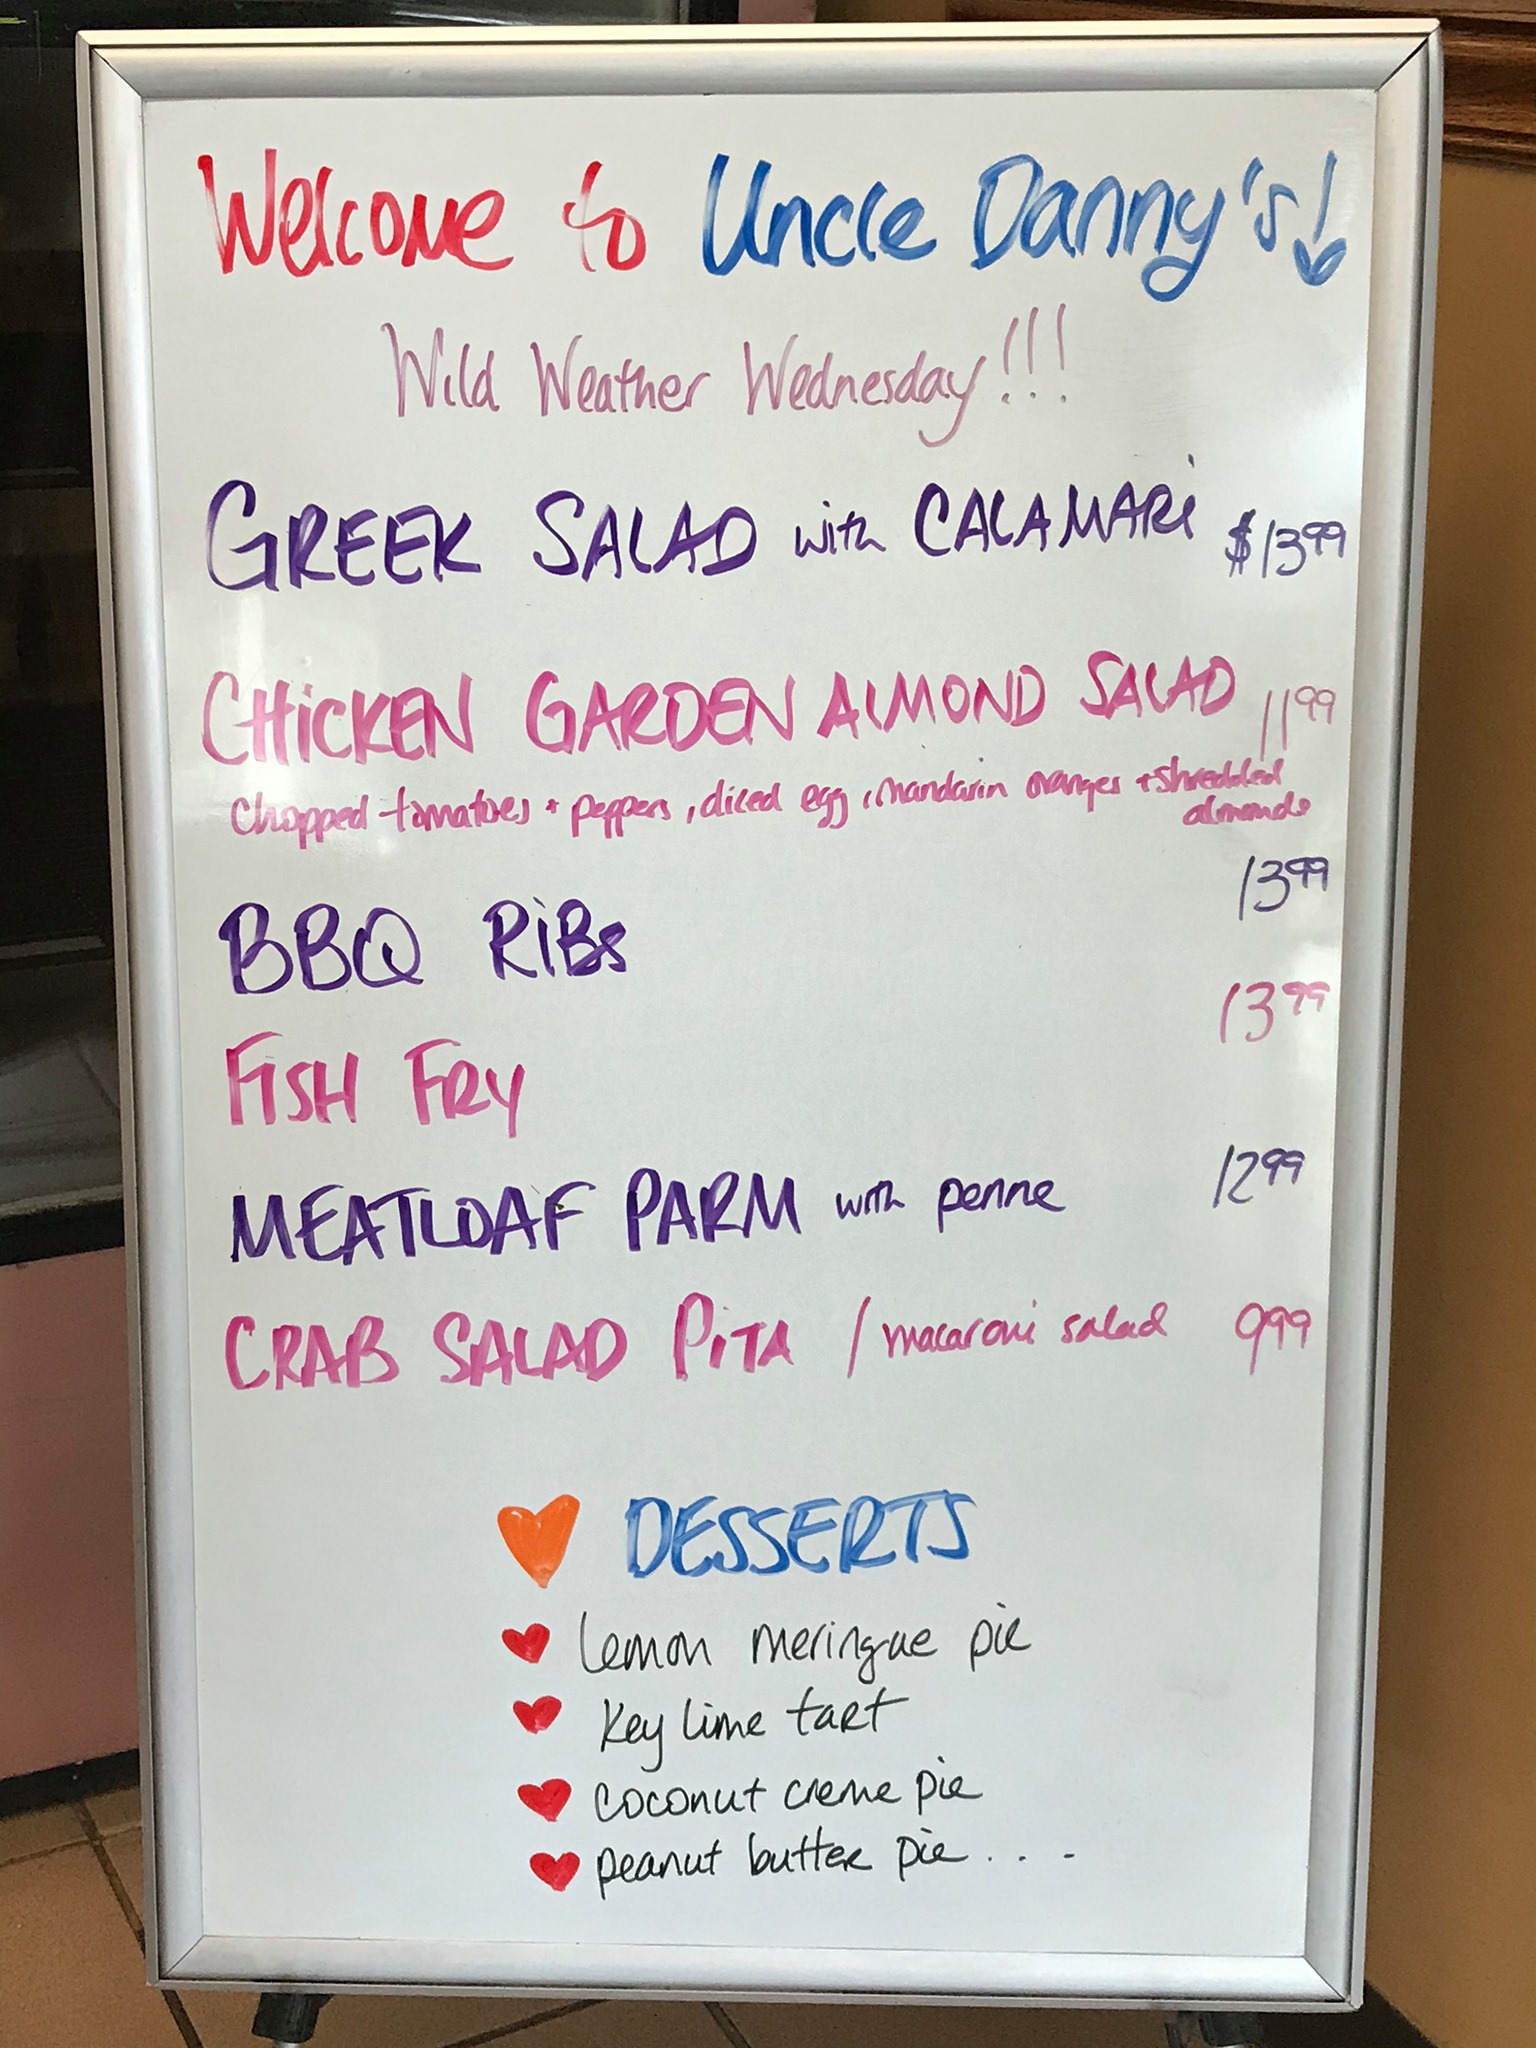 Welcome to Uncle Danny's!
Wild Weather Wednesday!!!
GREEK SALAD with CALAMARi $13.99
CHiCKEN GARDEN ALMOND SALAD 11.99
chopped tomatoes + peppers, diced egg, mandarin oranges + shredded
almonds
13.99
BBQ RiBs
13.99
FISH FRY
MEATLOAF PARM with penne 12.99
CRAB SALAD PiTA / macaroni salad 9.99
DESSERTS
lemon meringue pie
Key lime tart
coconut creme pie
peanut butter pie....